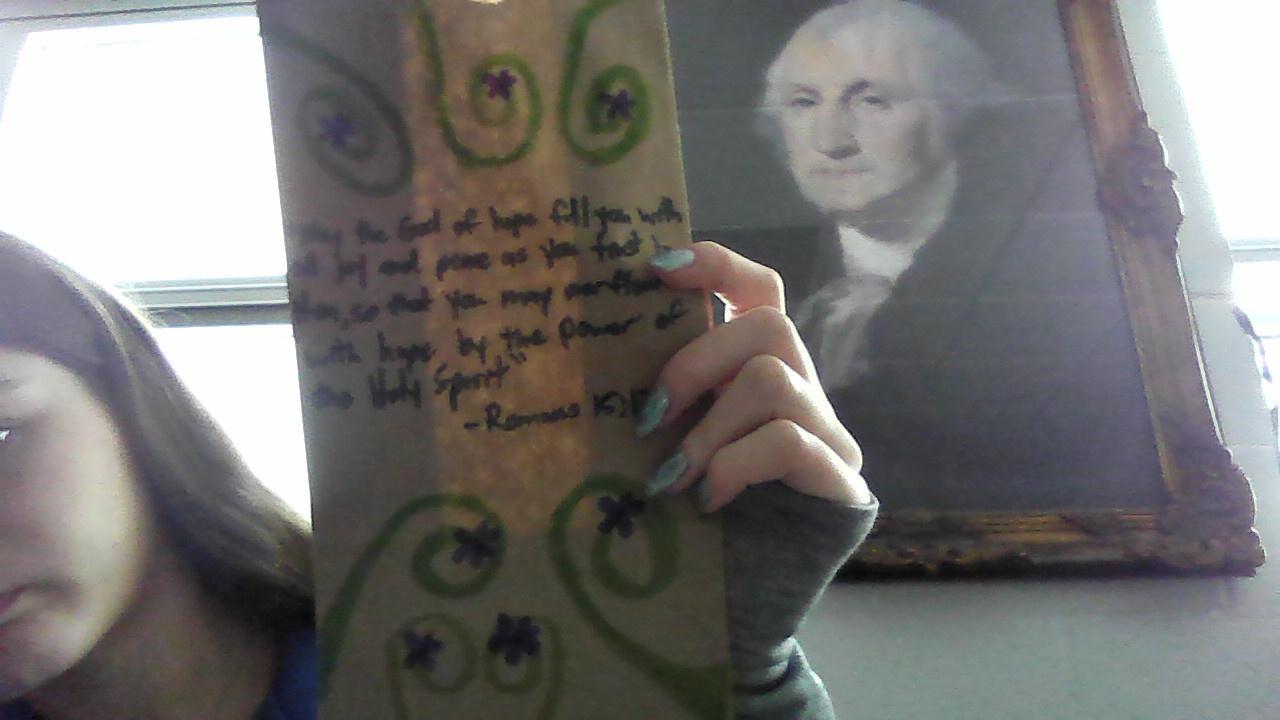 May the God of hope fill you with
all joy and peace as you trust in
him, so that you may overflow
with hope by the power of
the Holy Spirit"
-Romans 15:13